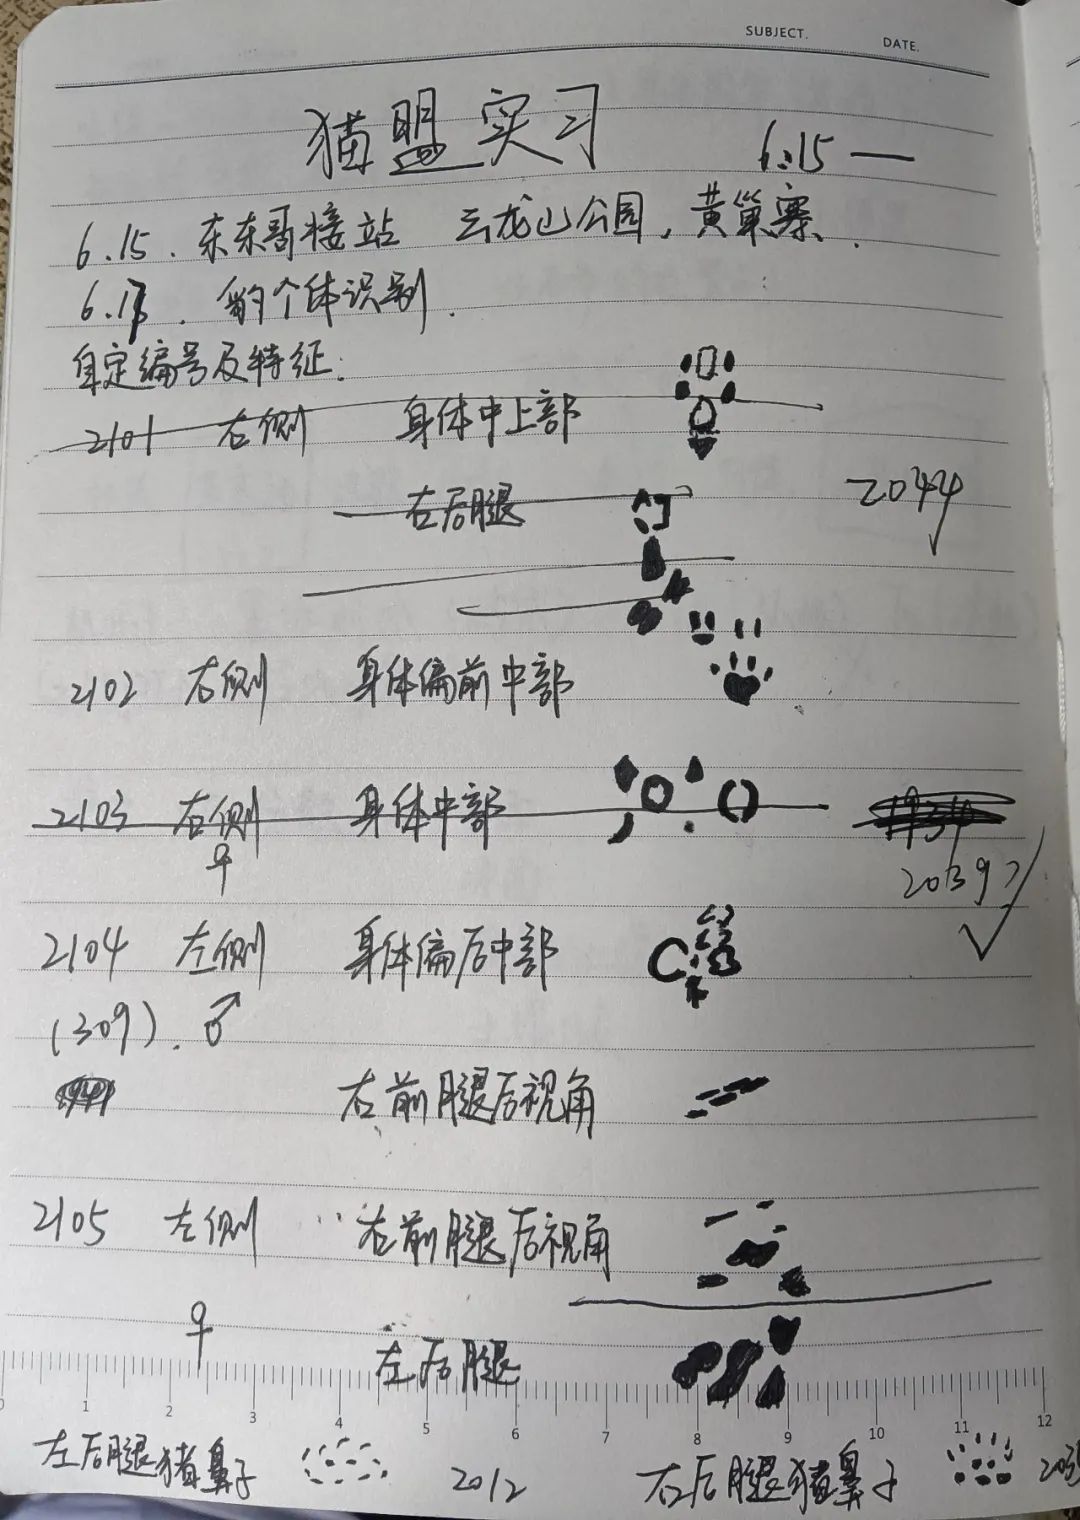 SUBJECT. DATE.
猫盟实习 6.15 —
6.15. 东东哥接站 云龙山公园, 黄巢寨.
6.17. 豹个体识别.
自定编号及特征:
2101 右侧 身体中上部
右后腿 2044
2102 右侧 身体偏前中部
2103 右侧 身体中部
♀ 2039?
2104 左侧 身体偏后中部
(309). ♂
右前腿后视角
2105 左侧 右前腿后视角
♀ 左后腿
0 1 2 3 4 5 6 7 8 9 10 11 12
左后腿猪鼻子 2012 右后腿猪鼻子